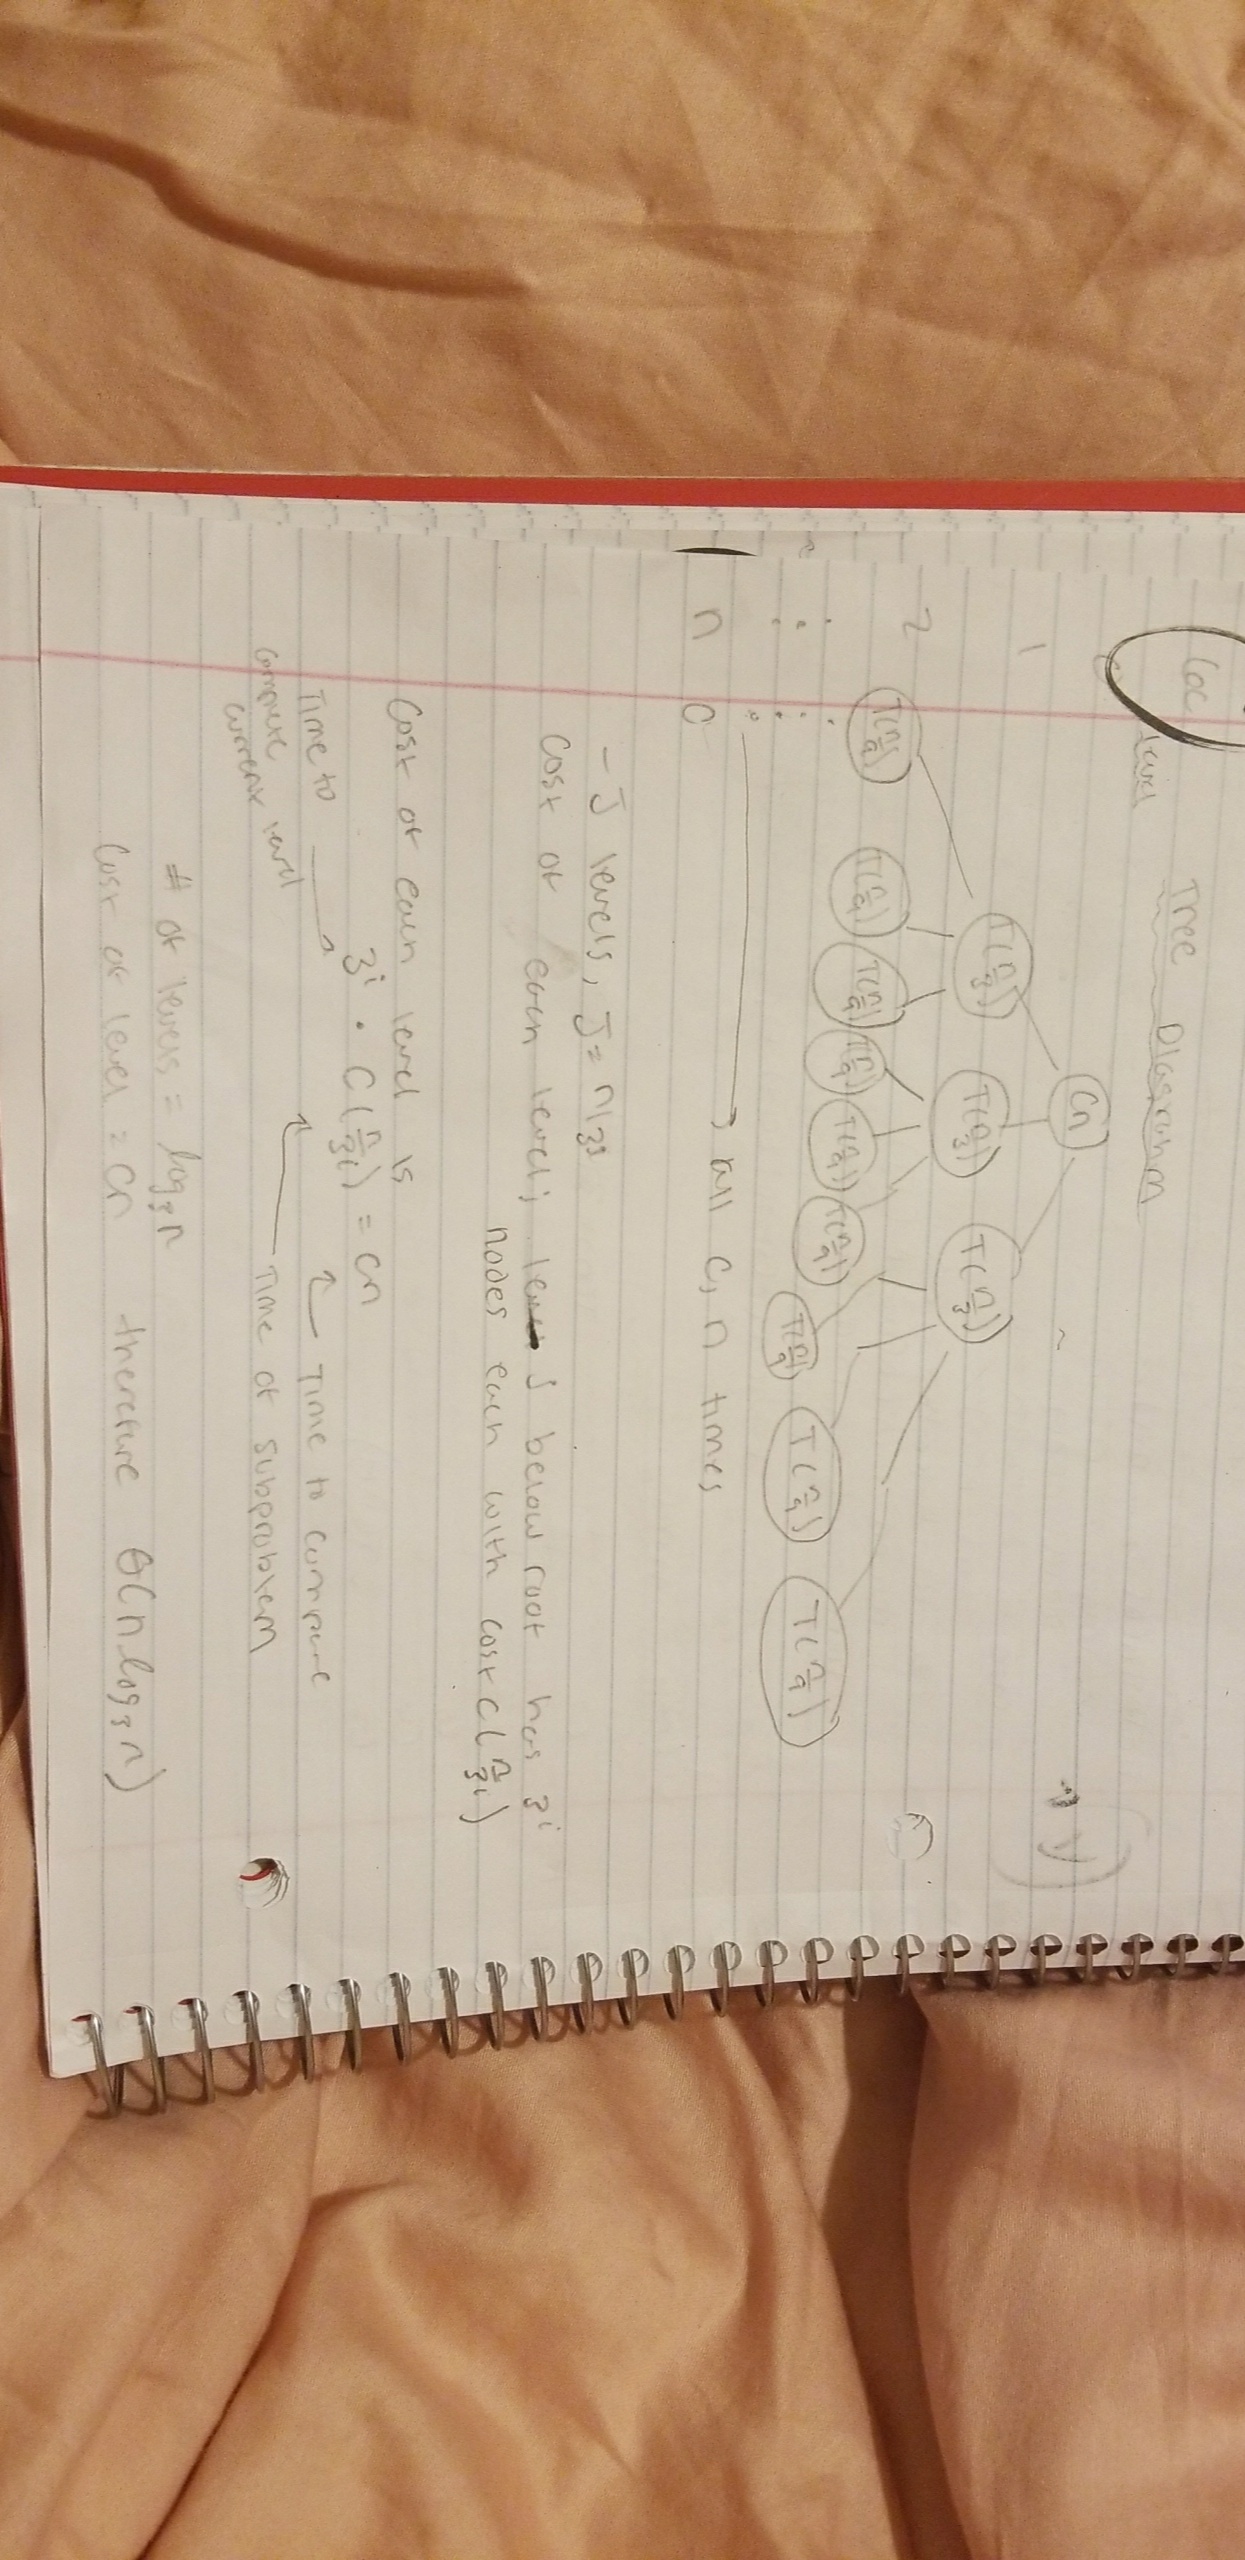 level Tree Diagram
Cn
1 T(n/3) T(n/3) T(n/3)
2 T(n/9) T(n/9) T(n/9) T(n/9) T(n/9) T(n/9) T(n/9) T(n/9) T(n/9)
n c → all c, n times
- J levels, J = n/3
Cost of each level; level J below root has 3^i
nodes each with cost C(n/3^i)
Cost of each level is
3^i · C(n/3^i) = cn
Time to
current level
Time to compute
Time of subproblem
# of levels = log₃n
Cost of level = cn therefore Θ(n log₃n)